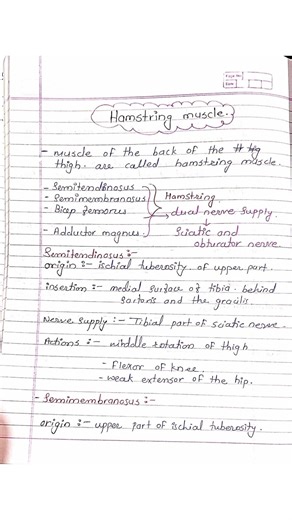 Page No.
Date
Hamstring muscle.
- muscle of the back of the
thigh are called hamstring muscle.
- Semitendinosus
- Semimembranosus
- Bicep femorus
Hamstring
dual nerve supply.
- Adductor magnus
Sciatic and
obturator nerve.
Semitendinosus :-
origin :- ischial tuberosity of upper part.
insertion :- medial surface of tibia behind
Sartoris and the gracilis.
Nerve supply :- Tibial part of sciatic nerve.
Actions :- middle rotation of thigh.
- Flexor of knee.
- weak extensor of the hip.
- Semimembranosus :-
origin :- upper part of ischial tuberosity.